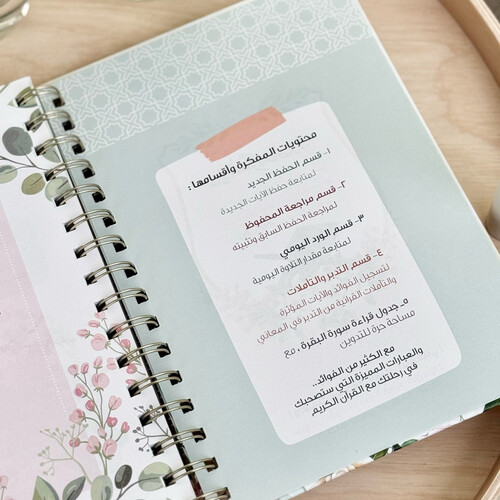 محتويات المفكرة وأقسامها :
١- قسم الحفظ الجديد
لمتابعة حفظ الآيات الجديدة
٢- قسم مراجعة المحفوظ
لمراجعة الحفظ السابق وتثبيته
٣- قسم الورد اليومي
لمتابعة مقدار التلاوة اليومية
٤- قسم التدبر والتأملات
لتسجيل الفوائد والآيات المؤثرة
والتأملات القرآنية من التدبر في المعاني
٥- جدول قراءة سورة البقرة ، مع
مساحة حرة للتدوين
مع الكثير من الفوائد..
والعبارات المميزة التي ستصحبك
في رحلتك مع القرآن الكريم